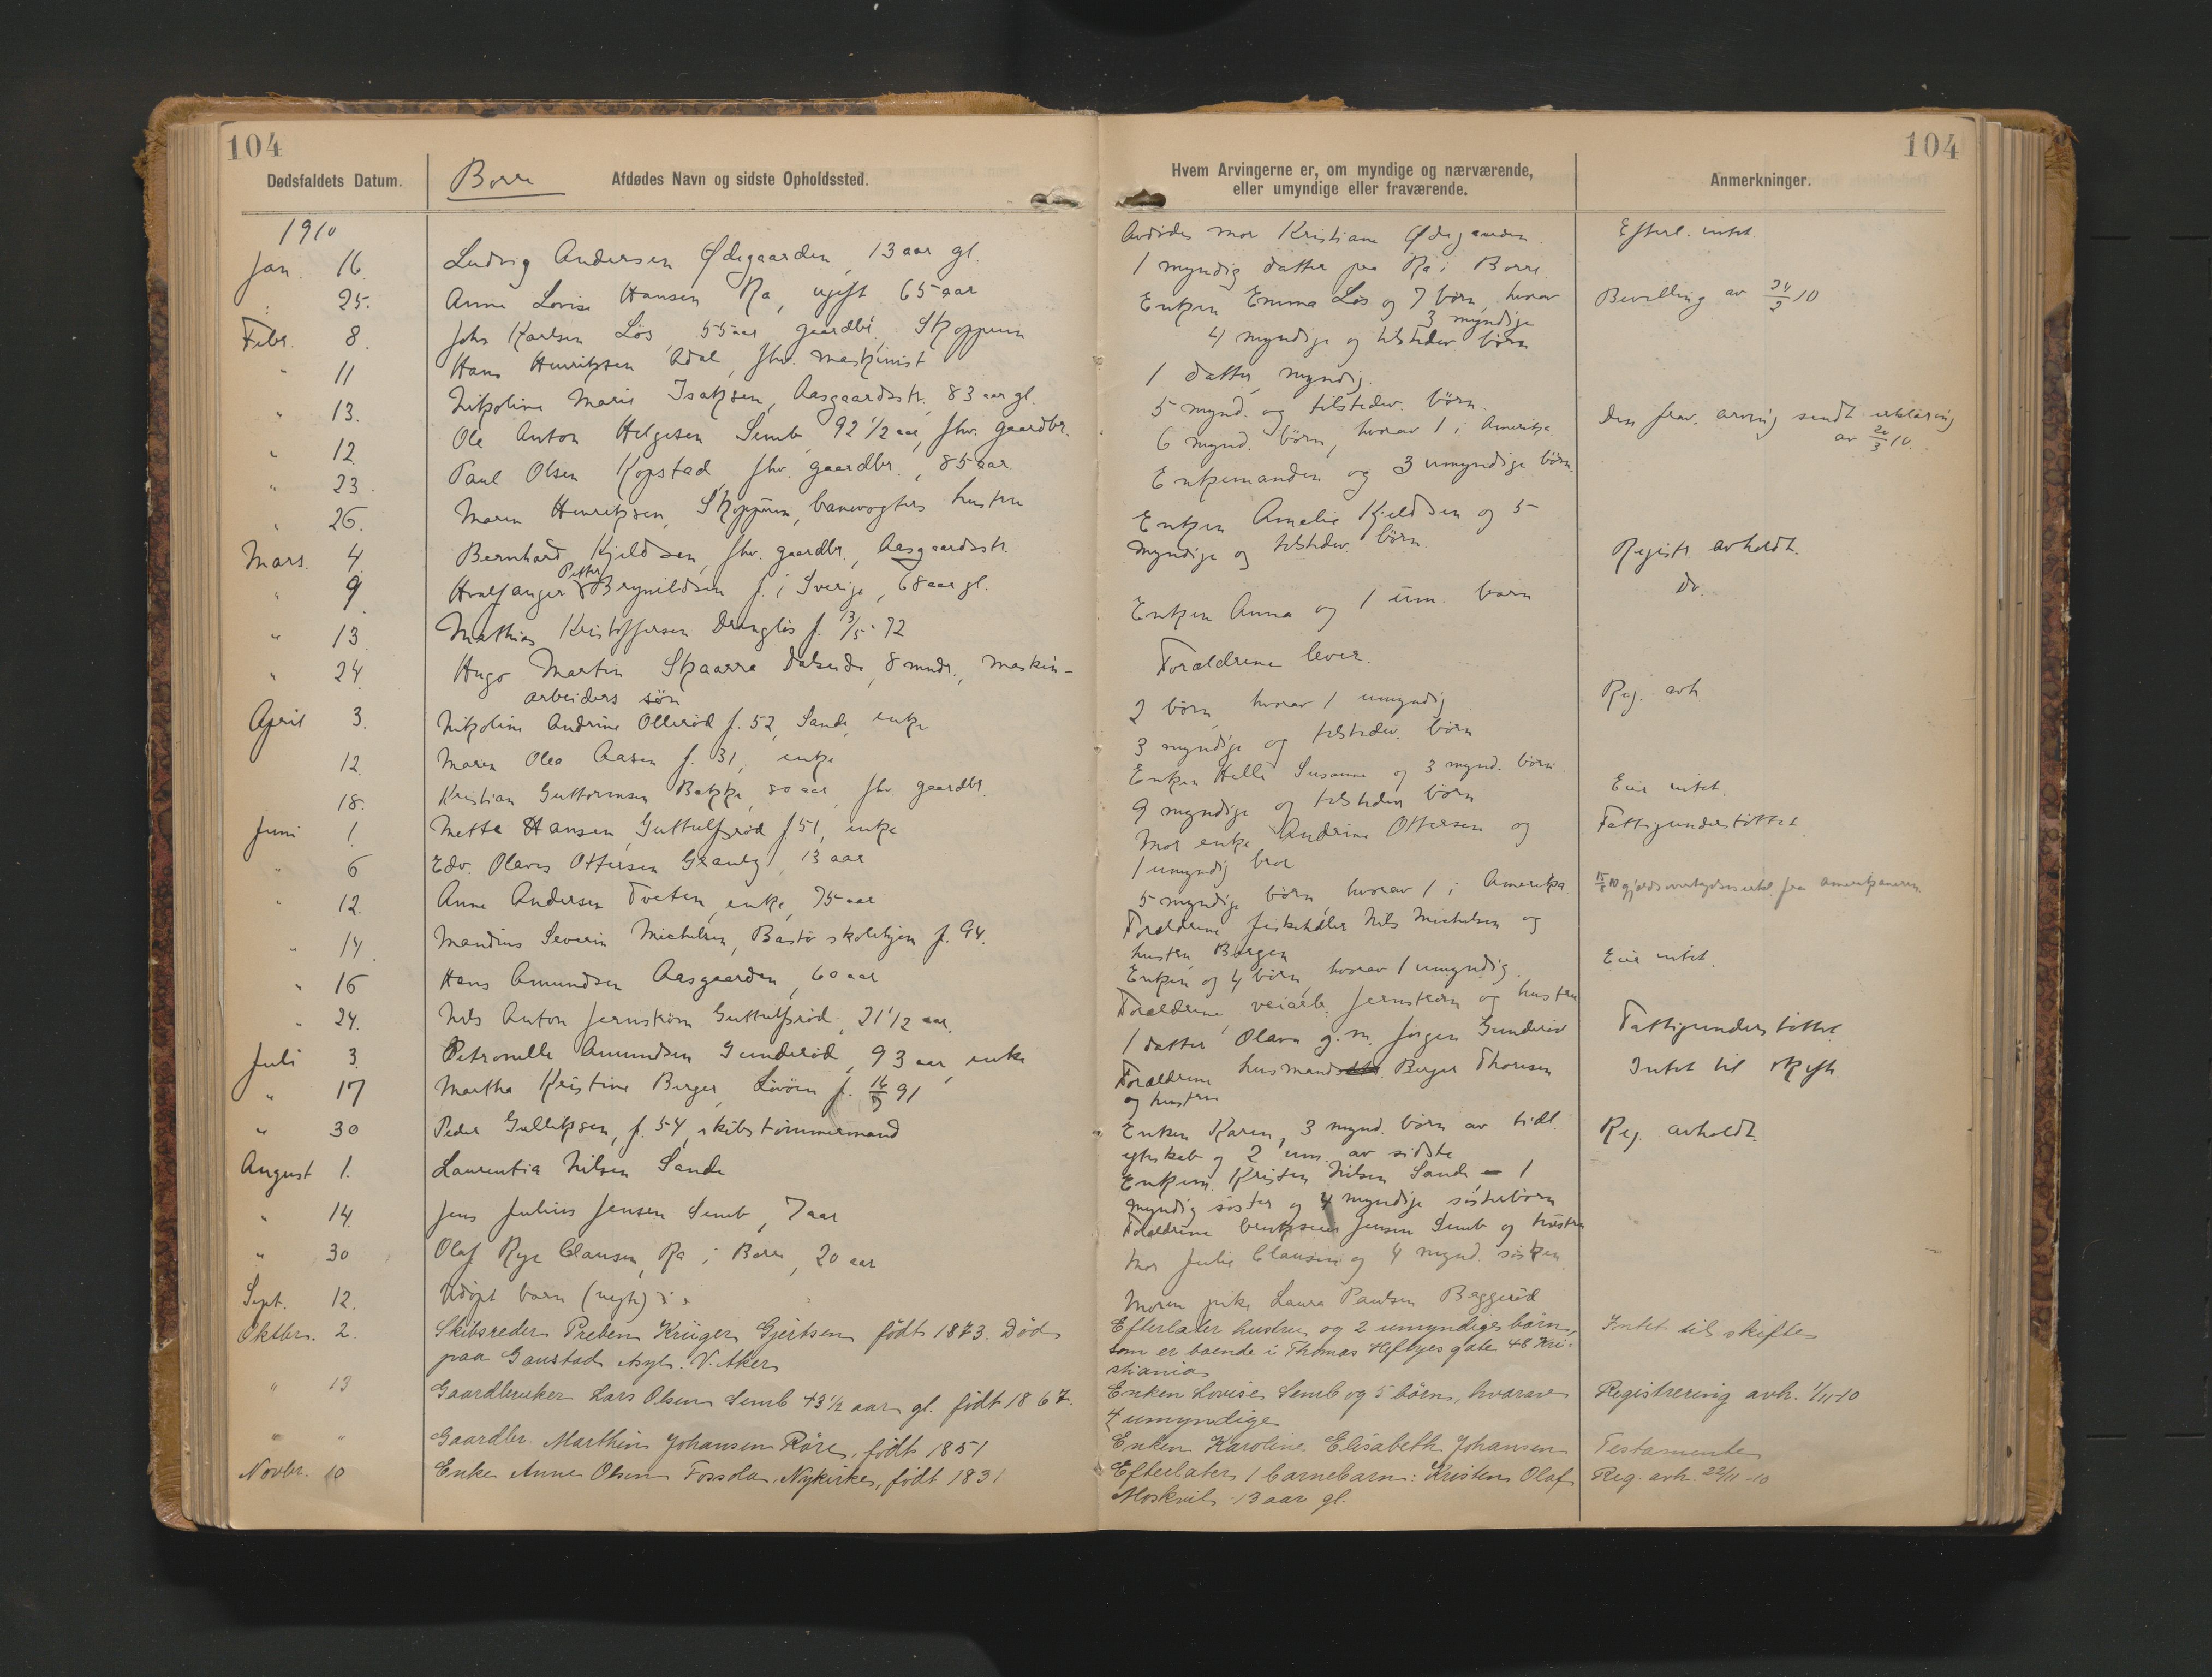 104
104
Dødsfaldets Datum.
Borre
Afdødes Navn og sidste Opholdssted.
Hvem Arvingerne er, om myndige og nærværende,
eller umyndige eller fraværende.
Anmerkninger.
1910
Jan. 16. Ludvig Andersen Ødegaarden, 13 aar gl.
Avdødes mor Kristiane Ødegaarden.
Efterl. intet.
" 25. Anne Lovise Hansen Ra, ugift 65 aar
1 myndig datter paa Ra i Borre.
Febr. 8. Johs Karlsen Løs, 55 aar, gaardbr., Skoppum
Enken Emma Løs og 7 børn, hvorav
3 myndige
Bevilling av 24/2 10
" 11 Hans Henriksen Adal, fhv. maskinist
4 myndige og tilstedev. børn
" 13. Nikoline Marie Isaksen, Aasgaardsstr., 83 aar gl.
1 datter, myndig.
" 12. Ole Anton Helgesen Semb, 92 1/2 aar, fhv. gaardbr.
5 mynd. og tilstedev. børn.
" 23. Paul Olsen Kopstad, fhv. gaardbr., 85 aar.
6 mynd. børn, hvorav 1 i Amerika.
Den frav. arving sendt erklæring
av 20/3 10.
" 26. Maren Henriksen, Skoppum, banevogters hustru
Enkemanden og 3 umyndige børn.
Mars. 4. Bernhard Kjeldsen, fhv. gaardbr., Aasgaardsstr.
Enken Amalie Kjeldsen og 5
myndige og tilstedev. børn.
Registr. avholdt.
" 9. Hvalfanger Petter Brynildsen f. i Sverige, 68 aar gl.
Do.
" 13. Mathias Kristoffersen Dranglös f. 13/5-72
Enken Anna og 1 um. barn
" 24. Hugo Martin Skaarra Dalsende, 8 mndr., maskin-
arbeiders søn
Forældrene lever.
April 3. Nikoline Andrine Ollerød f. 52, Sande, enke
2 børn, hvorav 1 umyndig
Reg. avh.
12. Maren Olea Aasen f. 31, enke
3 myndige og tilstedev. børn
18. Kristian Guttormsen Bakke, 80 aar, fhv. gaardbr.
Enken Helle Susanne og 3 mynd. børn.
Juni 1. Mette Hansen, Guttulfsrød f. 51, enke
9 myndige og tilstedev. børn
Eier intet.
" 6 Edv. Olaves Ottersen Granly, 13 aar
Mor enke Andrine Ottersen og
1 umyndig bror
Fattigunderstøttet
" 12. Anne Andersen Tveten, enke, 75 aar
5 myndige børn, hvorav 1 i Amerika.
15/8 10 gjældsovertagelseserkl. fra amerikaneren
" 14. Mandius Severin Michelsen, Bastø skolehjem f. 94.
Forældrene fiskehdler Nils Michelsen og
hustru Bergen
" 16 Hans Amundsen Aasgaarden, 60 aar
Enken og 4 børn, hvorav 1 umyndig.
Eier intet.
" 24. Nils Anton Jernstrøm Guttulfsrød, 21 1/2 aar.
Forældrene, veiarb. Jernstrøm og hustru
Juli 3. Petronelle Amundsen Gunderød, 93 aar, enke
1 datter Olava g. m. Jørgen Gunderød
Fattigunderstøttet.
" 17 Martha Kristine Berger, Løvøen f. 16/7 91
Forældrene husmands Berger Thoresen
og hustru
Intet til skifte.
" 30 Peder Gulliksen, f. 54, skibstømmermand
Enken Karen, 3 mynd. børn av tidl.
egteskab og 2 um. av sidste
Reg. avholdt.
August 1. Laurentia Nilsen Sande
Enkem. Kristen Nilsen Sande – 1
myndig søster og 4 myndige søsterbørn
" 14. Jens Julius Jensen Semb, 7 aar
Forældrene brukseier Jensen Semb og hustru
" 30 Olaf Rye Clausen, Ra i Borre, 20 aar
Mor Julie Clausen og 4 mynd. søsken
Sept. 12. Udøpt barn (uegte)
Moren pike Laura Paulsen Baggerød
Oktbr. 2. Skibsreder Preben Krüger Gjertsen født 1873. Død
paa Gaustad Asyl. V. Aker
Efterlater hustru og 2 umyndige børn,
som er boende i Thomas Heftyes gate 48 Kri-
stiania
Intet til skifte
" 13 Gaardbruker Lars Olsen Semb 43 1/2 aar gl. født 1867.
Enken Lovise Semb og 5 børn, hvorav
4 umyndige
Registrering avh. 1/11-10
" " Gaardbr. Marthin Johansen Røre, født 1851
Enken Karoline Elisabeth Johansen
Testamente
Novbr. 10 Enke Anne Olsen Fossola, Nykirke, født 1831
Efterlater 1 barnebarn: Kristen Olaf
Moskvil 13 aar gl.
Reg. avh. 22/11-10